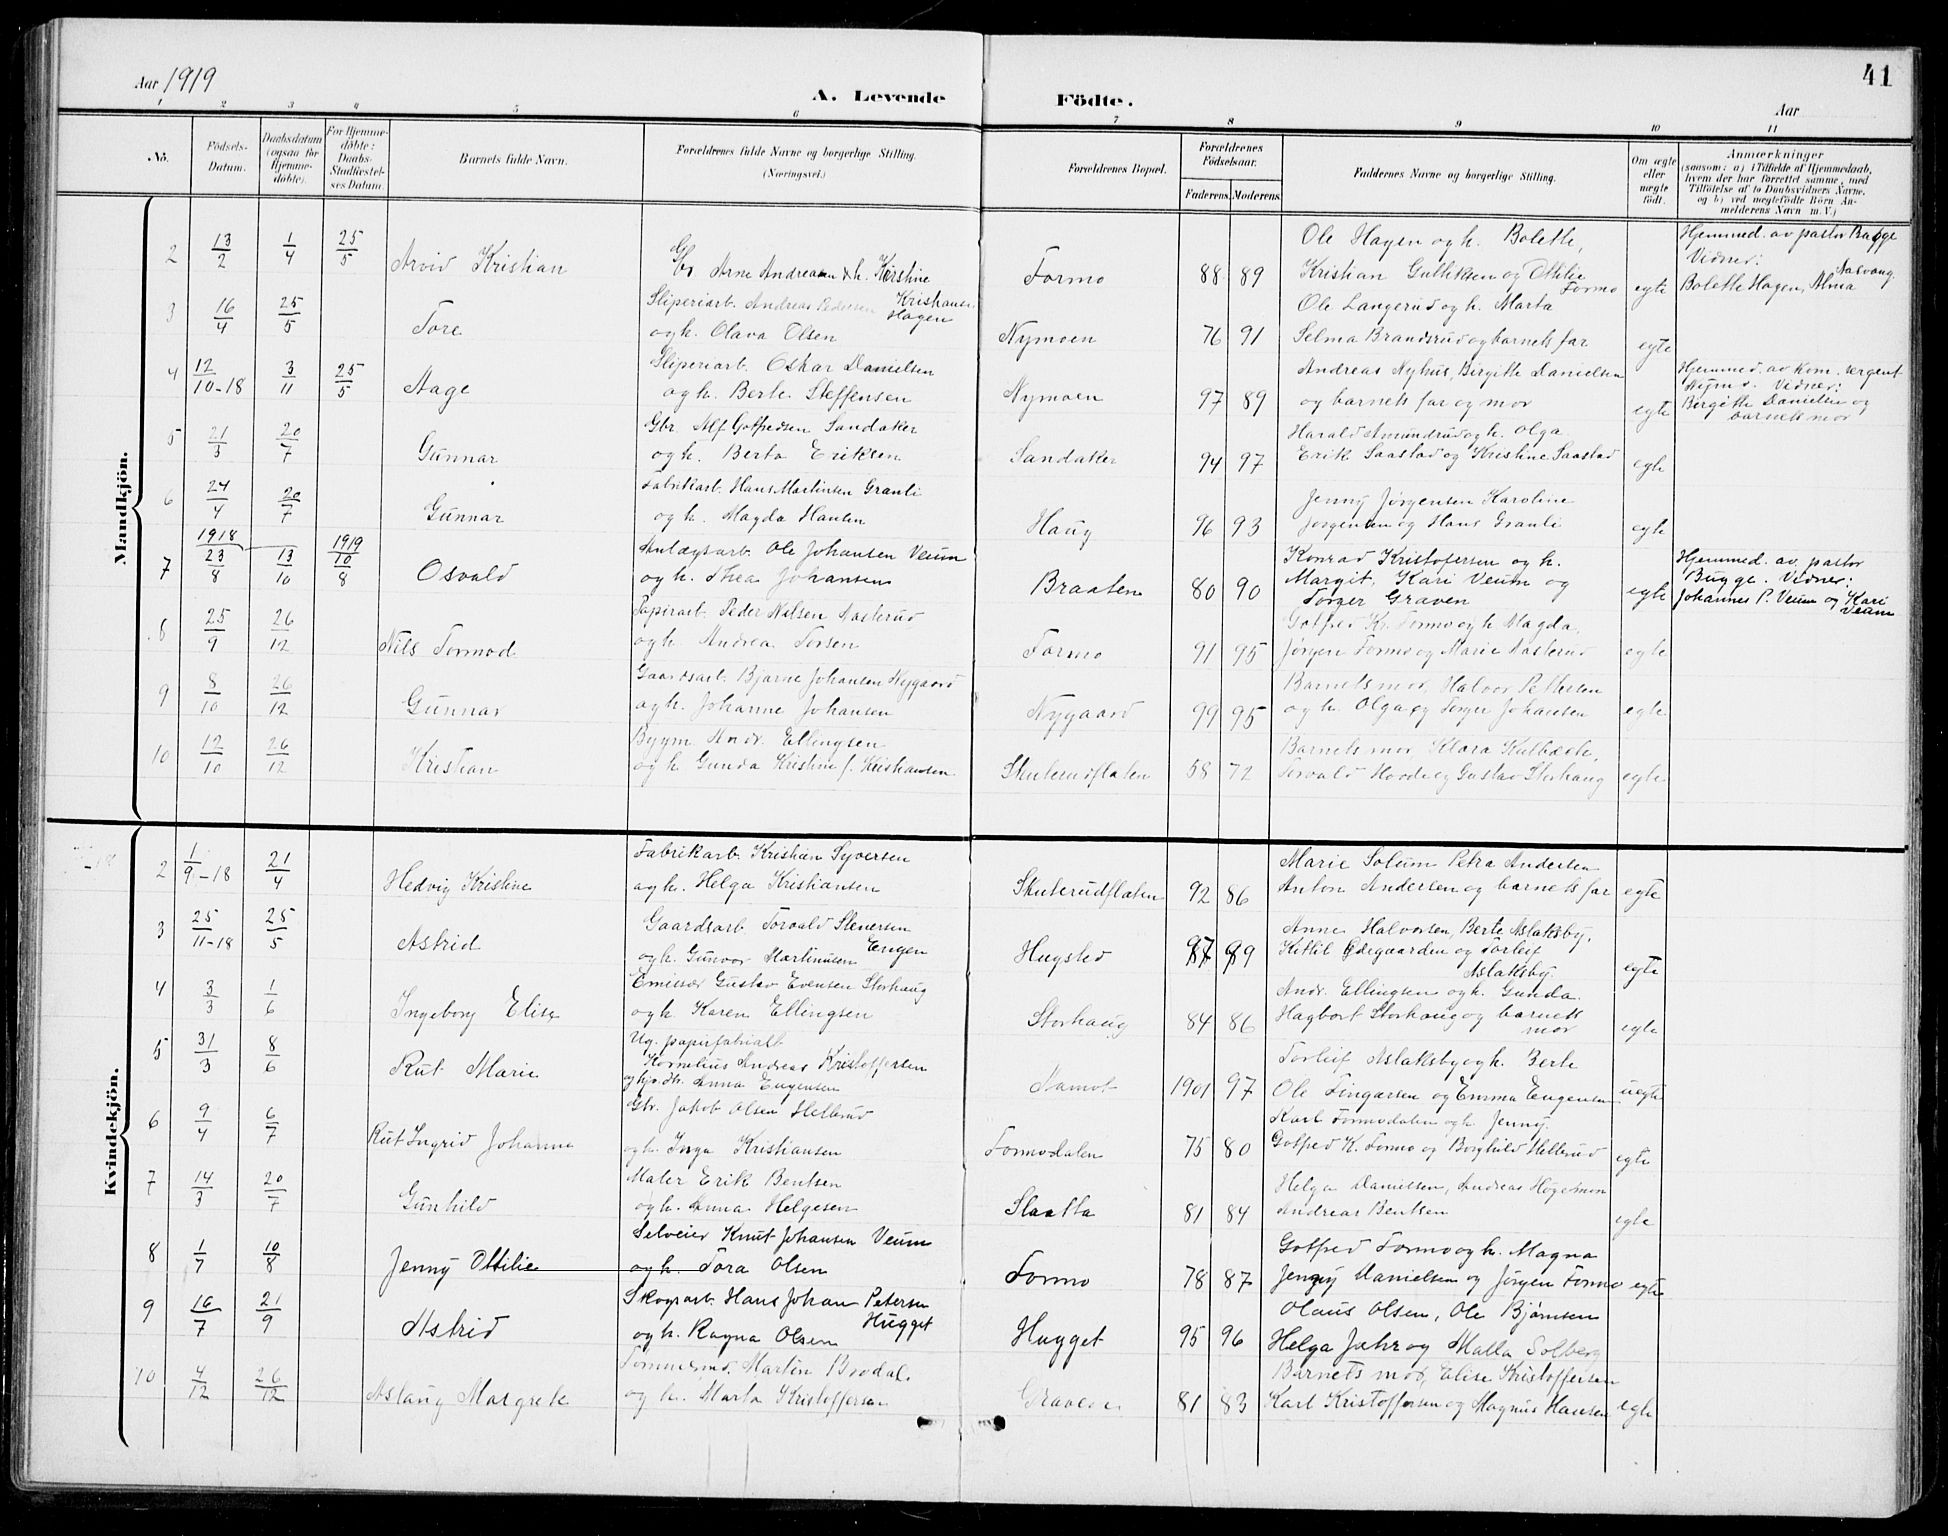 Aar 1919
A. Levende Födte.
Aar
41
1 2 3 4 5 6 7 8 9 10 11
No.
Födsels-Datum.
Daabsdatum (ogsaa for Hjemme-döbte).
For Hjemme-döbte: Daabs-Stadfæstel-ses Datum.
Barnets fulde Navn.
Forældrenes fulde Navne og borgerlige Stilling. (Næringsvei.)
Forældrenes Bopæl.
Forældrenes Födselsaar.
Faderens. Moderens.
Faddernes Navne og borgerlige Stilling.
Om ægte eller uægte födt.
Anmærkninger
(saasom: a) i Tilfælde af Hjemmedaab, hvem der har forrettet samme, med Tilföielse af to Daabsvidners Navne, og b) ved uægtefödte Börn An-melderens Navn m. V.)
Mandkjön.
2 13/2 1/4 25/5 Arvid Kristian Gbr Arne Andreasen & h. Kirstine Formo 88 89 Ole Hagen og h. Bolette, Kristian Gulliksen og Othilie Formo egte Hjemmed. av pastor Bugge Vidner: Bolette Hagen, Alma Aasvang
3 16/4 25/5 Tore Sliperiarb. Andreas Pedersen Kristiansen Hagen og h. Olava Olsen Nymoen 76 91 Ole Langerud og h. Marta Selma Brandsrud og barnets far egte
4 12/10-18 3/11 25/5 Aage Sliperiarb. Oskar Danielsen og h. Berte Steffensen Nymoen 97 89 Andreas Nyhus, Birgitte Danielsen og barnets far og mor egte Hjemmed. av Kom. sergent Vidner: Bergitte Danielsen og barnets mor
5 21/3 20/7 Gunnar Gbr Alf Gotfredsen Sandaker og h. Berta Eriksen Sandaker 94 97 Harald Amundrud og h. Olga Erik Saastad og Kristine Saastad egte
6 24/4 20/7 Gunnar Fabrikarb. Hans Martinsen Granli og h. Magda Hansen Haug 96 93 Jenny Jørgensen Karoline Jørgensen og Hans Granli egte
7 1918 23/8 13/10 1919 10/8 Osvald Anlægsarb. Ole Johansen Veum og h. Thea Johansen Braaten 80 90 Konrad Kristofersen og h. Margit, Kari Veum og Torger Graven egte Hjemmed. av pastor Bugge. Vidner: Johannes P. Veum og Kari Veum
8 25/9 26/12 Nils Tormod Papirarb. Peder Nilsen Aasterud og h. Andrea Torsen Formo 91 95 Gotfred Kr. Formo og h. Magda, Jørgen Formo og Marie Aasterud egte
9 8/10 26/12 Gunnar Gaardsarb. Bjarne Johansen Nygaard og h. Johanne Johansen Nygaard 99 95 Barnets mor, Halvor Pettersen og h. Olga og Torger Johansen egte
10 12/10 26/12 Kristian Bygm. Andr. Ellingsen og h Gunda Kristine f. Kristiansen Skuterudflaten 58 72 Barnets mor, Klara Kalbæck, Torvald Hovde og Gustav Storhaug egte
Kvindekjön.
2 1/9-18 21/4 Hedvig Kristine Fabrikarb. Kristian Syversen og h. Helga Kristiansen Skuterudflaten 92 86 Marie Solum Petra Andersen Anton Andersen og barnets far egte
3 25/11-18 25/5 Astrid Gaardsarb. Torvald Stenersen Engen og h. Gunvor Martinusen Hugsted 97 99 Anne Halvorsen, Berte Aslaksby, Kittil Ødegaarden og Torleif Aslaksby. egte
4 3/3 1/6 Ingeborg Elise Emissær Gustav Evensen Storhaug og h. Karen Ellingsen Storhaug 84 86 Andr. Ellingsen og h. Gunda. Hagbart Storhaug og barnets mor egte
5 31/3 8/6 Rut Marie Ug. papirfabralt Kornelius Andreas Kristoffersen og tj. Anna Eugensen Aamot 1901 97 Torleif Aslaksby og h. Berte Ole Fingarsen og Emma Eugensen uegte
6 9/4 6/7 Rut Ingrid Johanne Gbr. Jakob Olsen Hellerud og h. Inga Kristiansen Formodalen 75 80 Karl Formodalen og h. Jenny. Gotfred K. Formo og Borghild Hellerud egte
7 14/3 20/7 Gunhild Maler Erik Bentsen og h. Anna Helgesen Slaatta 81 84 Helga Danielsen, Andreas Høgsmon Andreas Bentsen egte
8 1/7 10/8 Jenny Ottilie Selveier Knut Johansen Veum og h. Tora Olsen Formo 78 87 Gotfred Formo og h. Magna Jenny Danielsen og Jørgen Formo egte
9 16/7 21/9 Astrid Skogsarb. Hans Johan Petersen Hugget og h. Ragna Olsen Hugget 95 96 Olaus Olsen, Ole Bjørnsen Helga Jahr og Malla Solberg
10 4/12 26/12 Aslaug Margrete Tømmerm. Martin Brodal. og h. Marta Kristoffersen Graven 81 83 Barnets mor, Elise Kristoffersen Karl Kristoffersen og Magnus Hansen egte